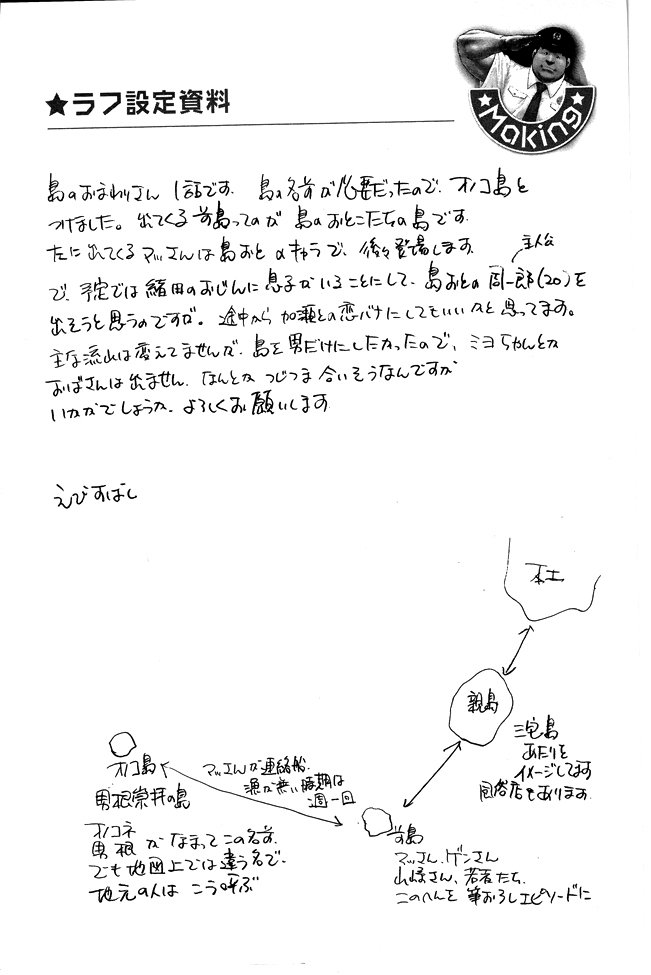 ★ラフ設定資料
Making
島のおまわりさん 1話です。 島の名前が必要だったので、オノコ島と
つけました。出てくる前島ってのが 島のおとこたちの島です。
たに出てくるマッさんは島おと のキャラで、後々登場します。
主人公
で、予定では緒田のおじんに息子がいることにして、島おとの周一郎(20)を
出そうと思うのですが。途中から加瀬との恋バナにしてもいいかと思ってます。
主な流れは変えてませんが、島を男だけにしたかったので、ミヨちゃんとか
おばさんは出ません。なんとか つじつま 合いそうなんですが
いかがでしょうか。よろしくお願いします
えびすばし
本土
親島
三宅島
あたりを
イメージしてます
風俗店もあります。
オノコ島
マッさんが連絡船。
漁が無い時期は
週一回
男根崇拝の島
前島
オノコネ
男根 がなまってこの名前。
でも地図上では違う名で、
地元の人は こう呼ぶ
マッさん、ゲンさん
山崎さん、若者たち、
このへんを 筆おろしエピソードに